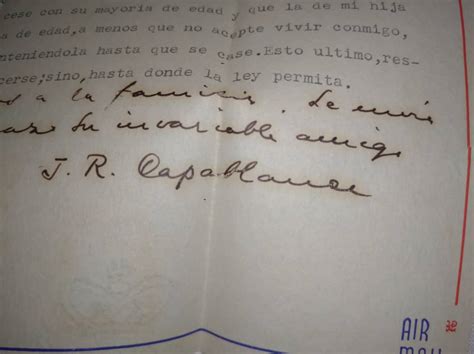 cese con su mayoria de edad y que la de mi hija
a de edad,a menos que no acepte vivir conmigo,
nteniendola hasta que se case.Esto ultimo,res-
cerse;sino,hasta donde la ley permita.
a la familia. Le envia
su invariable amigo
J. R. Capablanca
AIR
MAIL